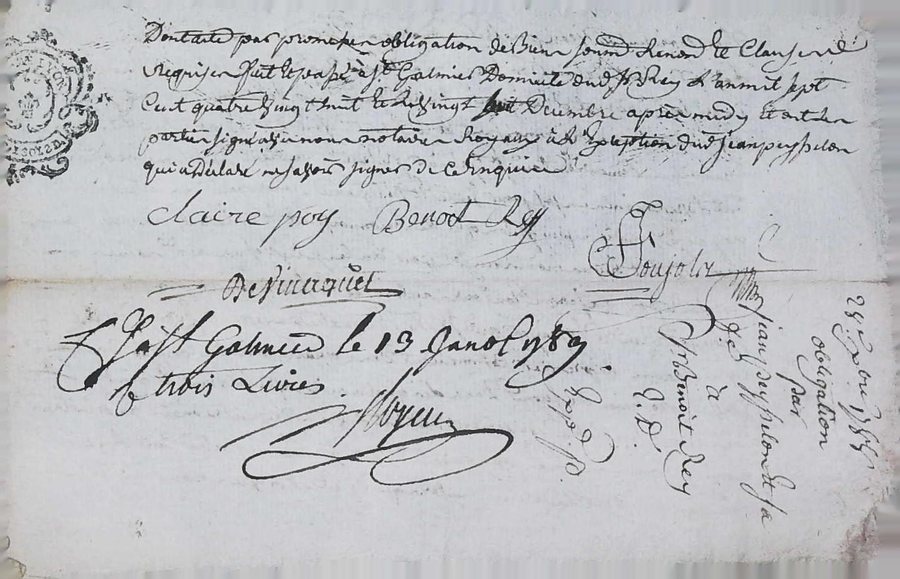 Dont acte par promesse obligation de biens soumd Renond et Clauses
requises fait et passé à St Galmier Domicile dud Sr Rey L'an mil sept
Cent quatre vingt huit et le vingt huit Decembre après midy et ont les
parties signé avec nous notaire Royaux à L'exception dud jean peysselon
qui a déclaré ne savoir signer de ce enquis
claire poy Benoit Rey
Devincquet
à St Galmier le 13 Janv 1789
trois Livres
29 Xbre 1788
obligation
par
jean peysselon et sa
à
Sr Benoit Rey